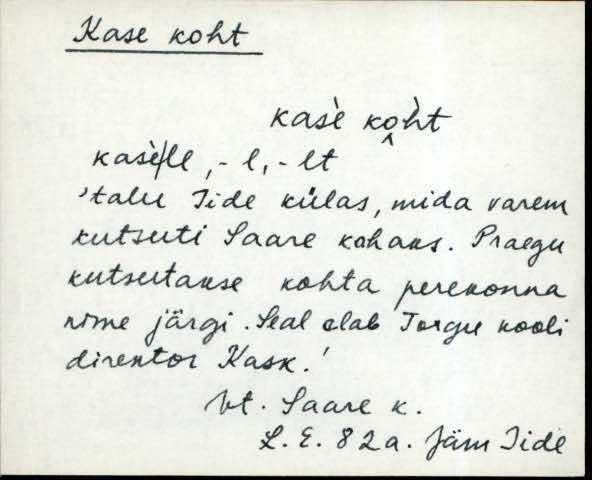 Kase koht
kasè kòht
kasè/le, -l, -lt
'talu Iide külas, mida varem
kutsuti Saare kohaks. Praegu
kutsutakse kohta perekonna
nime järgi. Seal elab Torgu kooli
direktor Kask.'
Vt. Saare k.
L. E. 82a. Jäm Iide